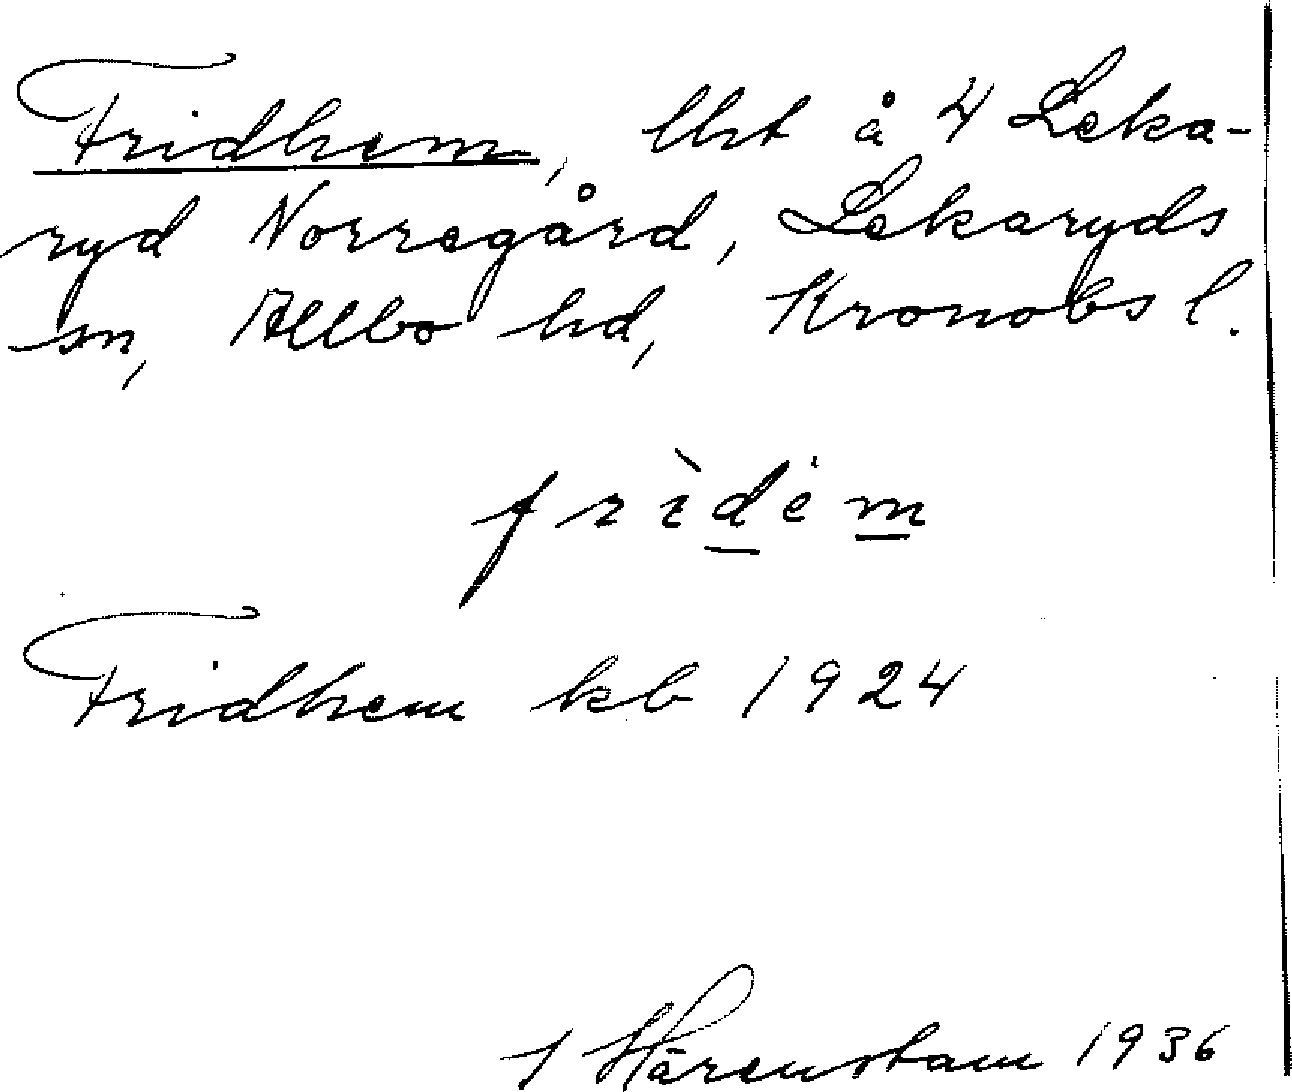 Fridhem, lht å 4 Leka-
ryd Norregård, Lekaryds
sn, Allbo hd, Kronobs l.
frìdėm
Fridhem kb 1924
J Härenstam 1936